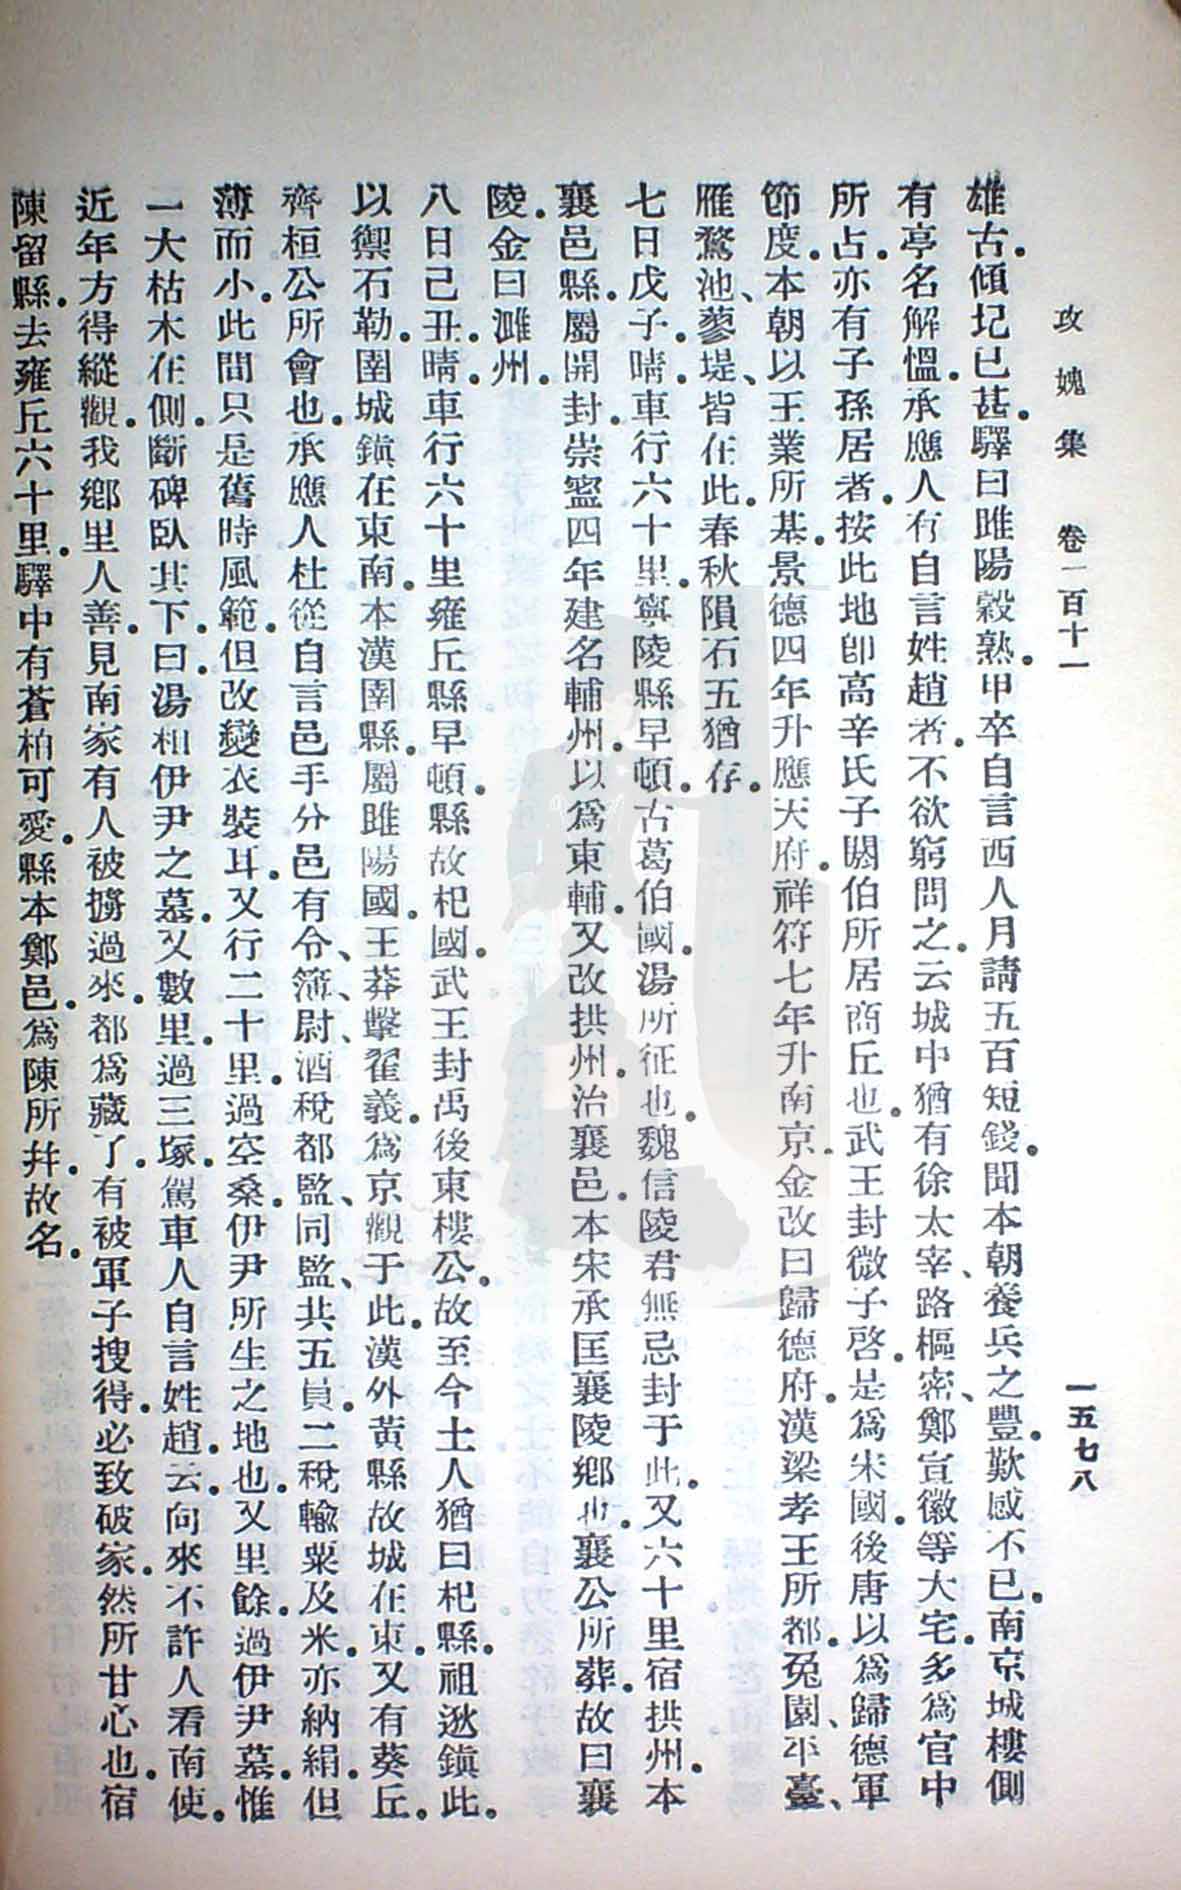 攻媿集 卷一百十一 一五七八
雄古。傾圮已甚。驛曰睢陽穀熟。甲卒自言西人月請五百短錢。聞本朝養兵之豐。歎感不已。南京城樓側
有亭名解慍。承應人有自言姓趙者。不欲窮問之。云城中猶有徐太宰、路樞密、鄭宣徽等大宅。多爲官中
所占。亦有子孫居者。按此地卽高辛氏子閼伯所居商丘也。武王封微子啓。是爲宋國。後唐以爲歸德軍
節度。本朝以王業所基。景德四年升應天府。祥符七年升南京。金改曰歸德府。漢梁孝王所都。兔園、平臺、
雁鶩池、蓼堤、皆在此。春秋隕石五猶存。
七日戊子。晴。車行六十里。寧陵縣早頓。古葛伯國。湯所征也。魏信陵君無忌封于此。又六十里宿拱州。本
襄邑縣。屬開封。崇寧四年建名輔州。以爲東輔。又改拱州。治襄邑。本宋承匡襄陵鄉也。襄公所葬。故曰襄
陵。金曰濉州。
八日己丑。晴。車行六十里雍丘縣早頓。縣故杞國。武王封禹後東樓公。故至今土人猶曰杞縣。祖逖鎮此。
以禦石勒。圉城鎮在東南。本漢圉縣。屬睢陽國。王莽擊翟義。爲京觀于此。漢外黃縣故城在東。又有葵丘。
齊桓公所會也。承應人杜從自言邑手分。邑有令、簿、尉、酒稅都監、同監、共五員。二稅輸粟及米。亦納絹。但
薄而小。此間只是舊時風範。但改變衣裝耳。又行二十里。過空桑。伊尹所生之地也。又里餘。過伊尹墓。惟
一大枯木在側。斷碑臥其下。曰。湯相伊尹之墓。又數里。過三塚。駕車人自言姓趙。云。向來不許人看南使。
近年方得縱觀。我鄉里人善。見南家有人被擄過來。都爲藏了。有被軍子搜得。必致破家。然所甘心也。宿
陳留縣。去雍丘六十里。驛中有蒼柏可愛。縣本鄭邑。爲陳所幷。故名。